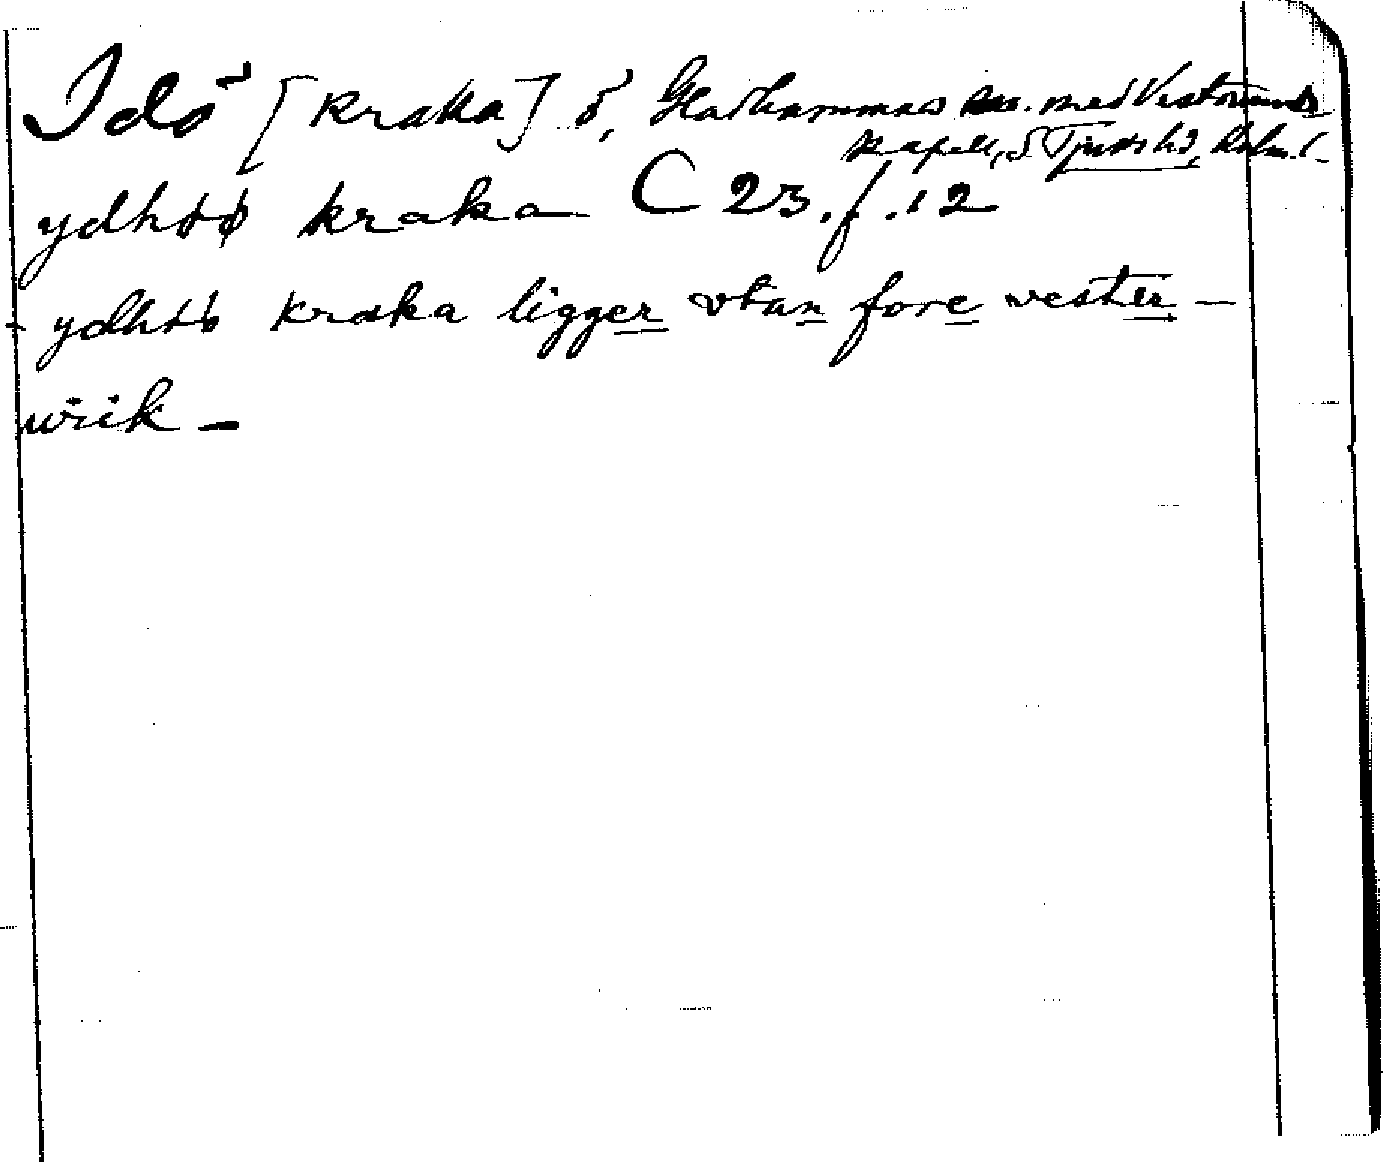 Idö [kraka] ö, Gladhammas sn. med Västerviks
kapell, S Tjusts hd, Kalm. l.
ydhøø kraka C 23. f. 12
ydhöö kraka ligger vtan fore vester-
wiik -